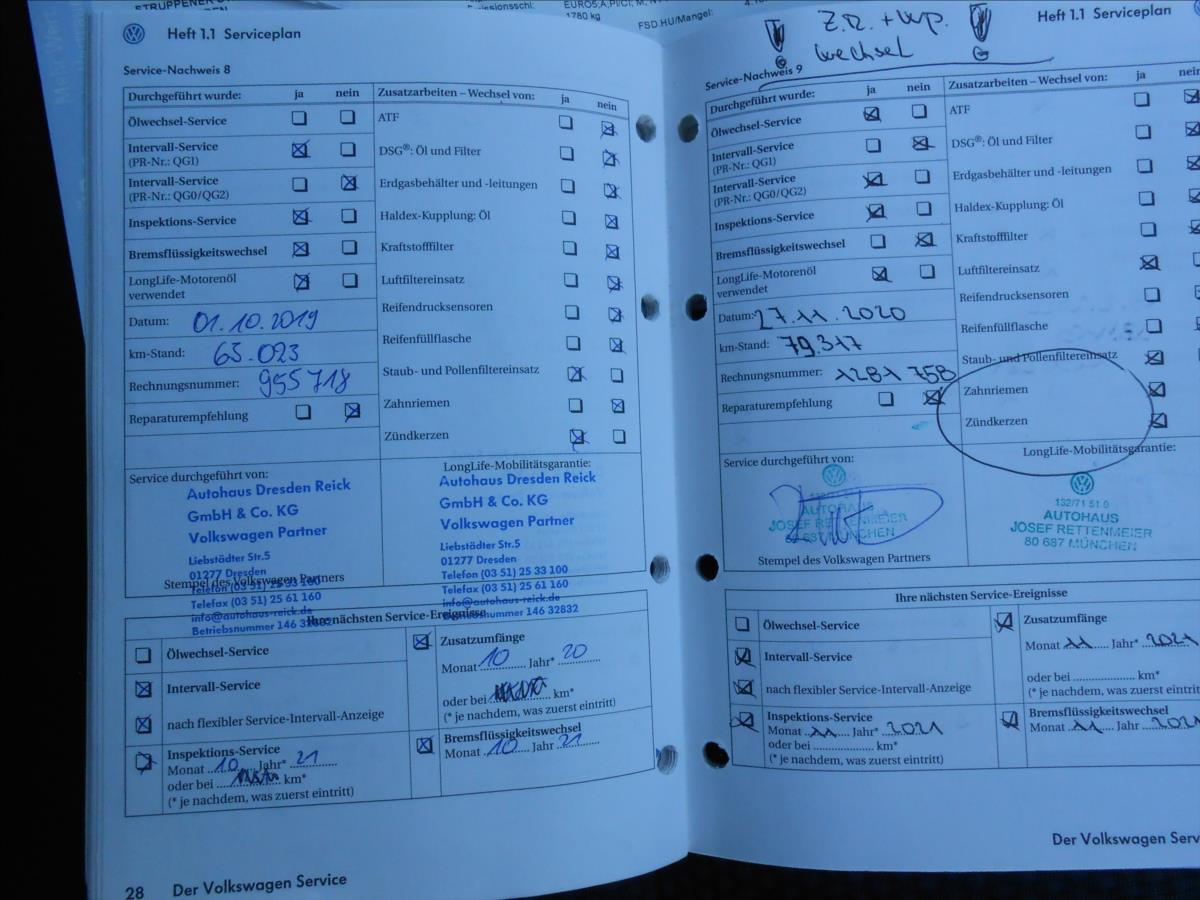 STRUPPENER S
EURO5;A;P/CI; M, N
1780 kg
FSD.HU/Mangel:
Heft 1.1 Serviceplan
Service-Nachweis 8
Durchgeführt wurde: ja nein
Zusatzarbeiten – Wechsel von: ja nein
Ölwechsel-Service
ATF
Intervall-Service
(PR-Nr.: QG1)
DSG®: Öl und Filter
Intervall-Service
(PR-Nr.: QG0/QG2)
Erdgasbehälter und -leitungen
Inspektions-Service
Haldex-Kupplung: Öl
Bremsflüssigkeitswechsel
Kraftstofffilter
LongLife-Motorenöl
verwendet
Luftfiltereinsatz
Datum: 01.10.2019
Reifendrucksensoren
km-Stand: 63.023
Reifenfüllflasche
Rechnungsnummer: 955718
Staub- und Pollenfiltereinsatz
Reparaturempfehlung
Zahnriemen
Zündkerzen
Service durchgeführt von:
Autohaus Dresden Reick
GmbH & Co. KG
Volkswagen Partner
Liebstädter Str.5
01277 Dresden
Telefon (03 51) 25 33 100
Telefax (03 51) 25 61 160
info@autohaus-reick.de
Betriebsnummer 146 32832
Stempel des Volkswagen Partners
LongLife-Mobilitätsgarantie:
Autohaus Dresden Reick
GmbH & Co. KG
Volkswagen Partner
Liebstädter Str.5
01277 Dresden
Telefon (03 51) 25 33 100
Telefax (03 51) 25 61 160
info@autohaus-reick.de
Betriebsnummer 146 32832
Ihre nächsten Service-Ereignisse
Ölwechsel-Service
Zusatzumfänge
Monat 10 Jahr* 20
Intervall-Service
oder bei km*
(* je nachdem, was zuerst eintritt)
nach flexibler Service-Intervall-Anzeige
Inspektions-Service
Monat 10 Jahr* 21
oder bei km*
(* je nachdem, was zuerst eintritt)
Bremsflüssigkeitswechsel
Monat 10 Jahr 21
28 Der Volkswagen Service
Z.R. + Wp.
wechsel
Heft 1.1 Serviceplan
Service-Nachweis 9
Durchgeführt wurde: ja nein
Zusatzarbeiten – Wechsel von: ja nein
Ölwechsel-Service
ATF
Intervall-Service
(PR-Nr.: QG1)
DSG®: Öl und Filter
Intervall-Service
(PR-Nr.: QG0/QG2)
Erdgasbehälter und -leitungen
Inspektions-Service
Haldex-Kupplung: Öl
Bremsflüssigkeitswechsel
Kraftstofffilter
LongLife-Motorenöl
verwendet
Luftfiltereinsatz
Datum: 27.11.2020
Reifendrucksensoren
km-Stand: 79.317
Reifenfüllflasche
Rechnungsnummer: 1281 758
Staub- und Pollenfiltereinsatz
Reparaturempfehlung
Zahnriemen
Zündkerzen
Service durchgeführt von:
132/71 51 0
AUTOHAUS
JOSEF RETTENMEIER
80 687 MÜNCHEN
Stempel des Volkswagen Partners
LongLife-Mobilitätsgarantie:
132/71 51 0
AUTOHAUS
JOSEF RETTENMEIER
80 687 MÜNCHEN
Ihre nächsten Service-Ereignisse
Ölwechsel-Service
Zusatzumfänge
Monat 11 Jahr* 2021
Intervall-Service
oder bei km*
(* je nachdem, was zuerst eintritt)
nach flexibler Service-Intervall-Anzeige
Inspektions-Service
Monat 11 Jahr* 2021
oder bei km*
(* je nachdem, was zuerst eintritt)
Bremsflüssigkeitswechsel
Monat 11 Jahr 2021
Der Volkswagen Serv